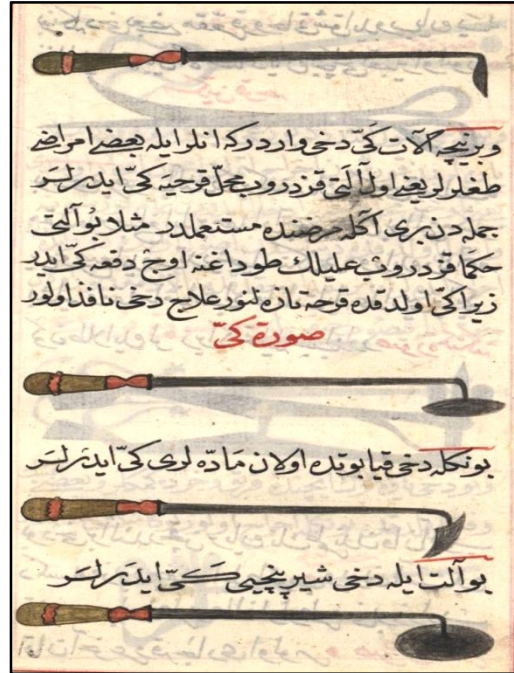 وبرنیچه آلات کیّ دخی واردرکه انلر ایله بعضے امراضه
طغلرلر یعنے اول آلتی قزدروب محلّ قرحیه کیّ ایدرلر
جمله دن بری آکله مرضنده مستعملدر مثلا بو آلتی
حکما قزدروب علیلك طوداغنه اوچ دفعه کیّ ایدر
زیرا کیّ اولدقده قرحه تازه لنور علاج دخی نافذ اولور
صورة کیّ
بونکله دخی قیا بوتده اولان مادّه لری کیّ ایدرلر
بو آلت ایله دخی شیرپنچیی کیّ ایدرلر